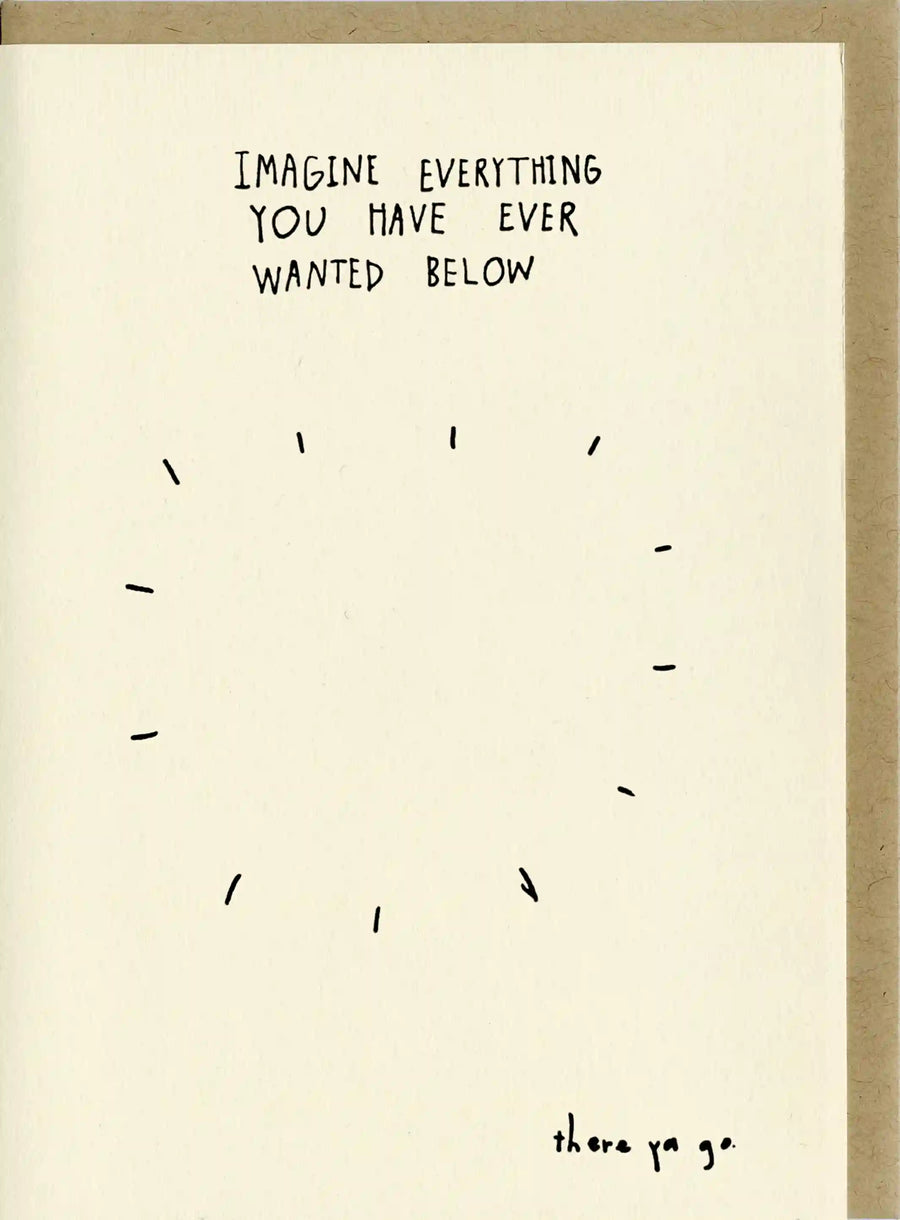 IMAGINE EVERYTHING
YOU HAVE EVER
WANTED BELOW
there ya go.